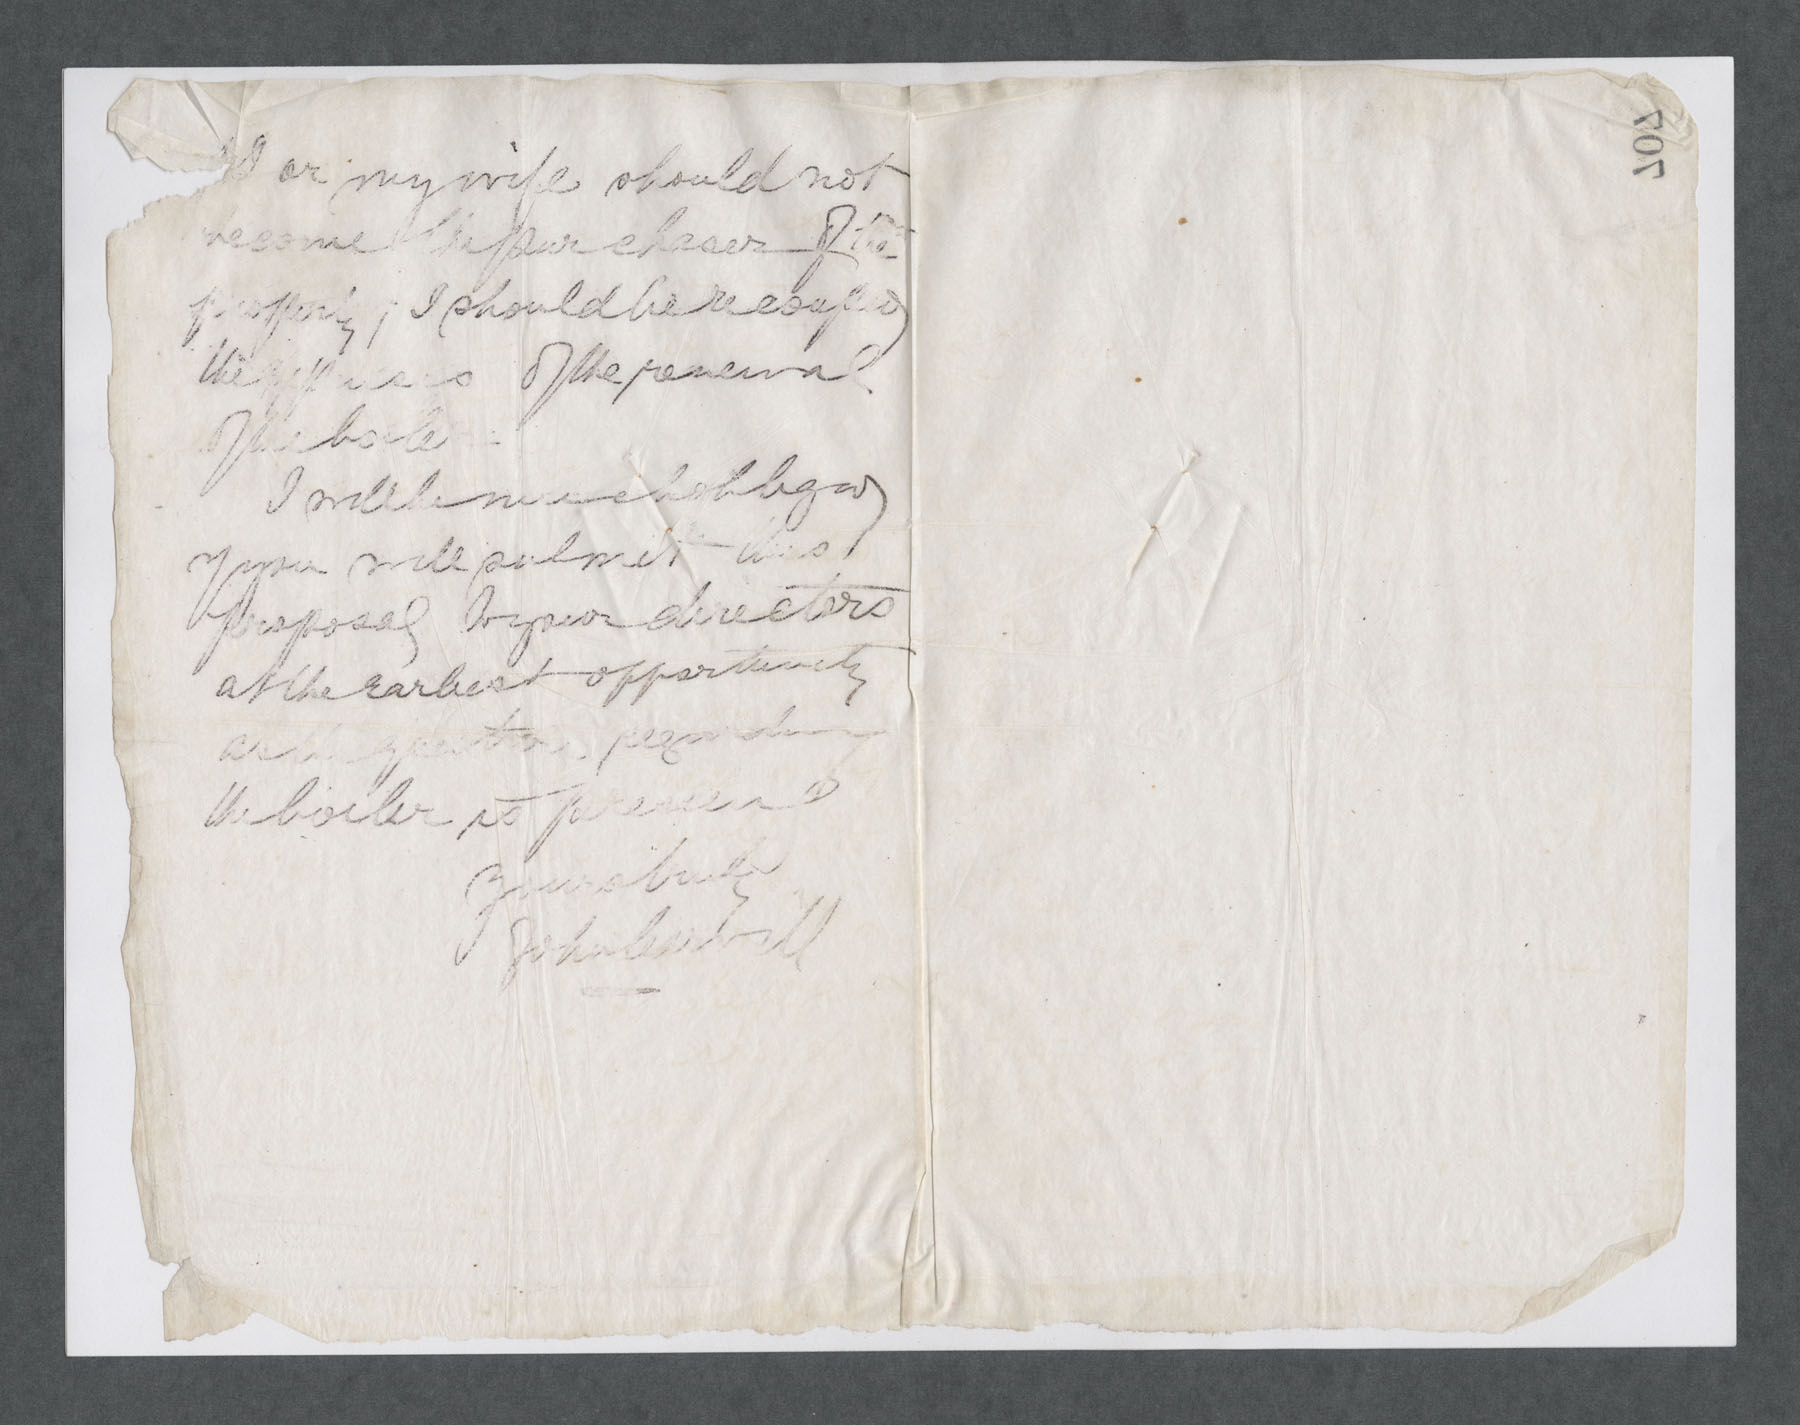 I or my wife should not
become the purchaser of the
property, I should be recouped
the expenses of the renewal
of the boiler.
I will be much obliged
if you will submit this
proposal to your directors
at the earliest opportunity
as the question regarding
the boiler is
Yours truly
John
407